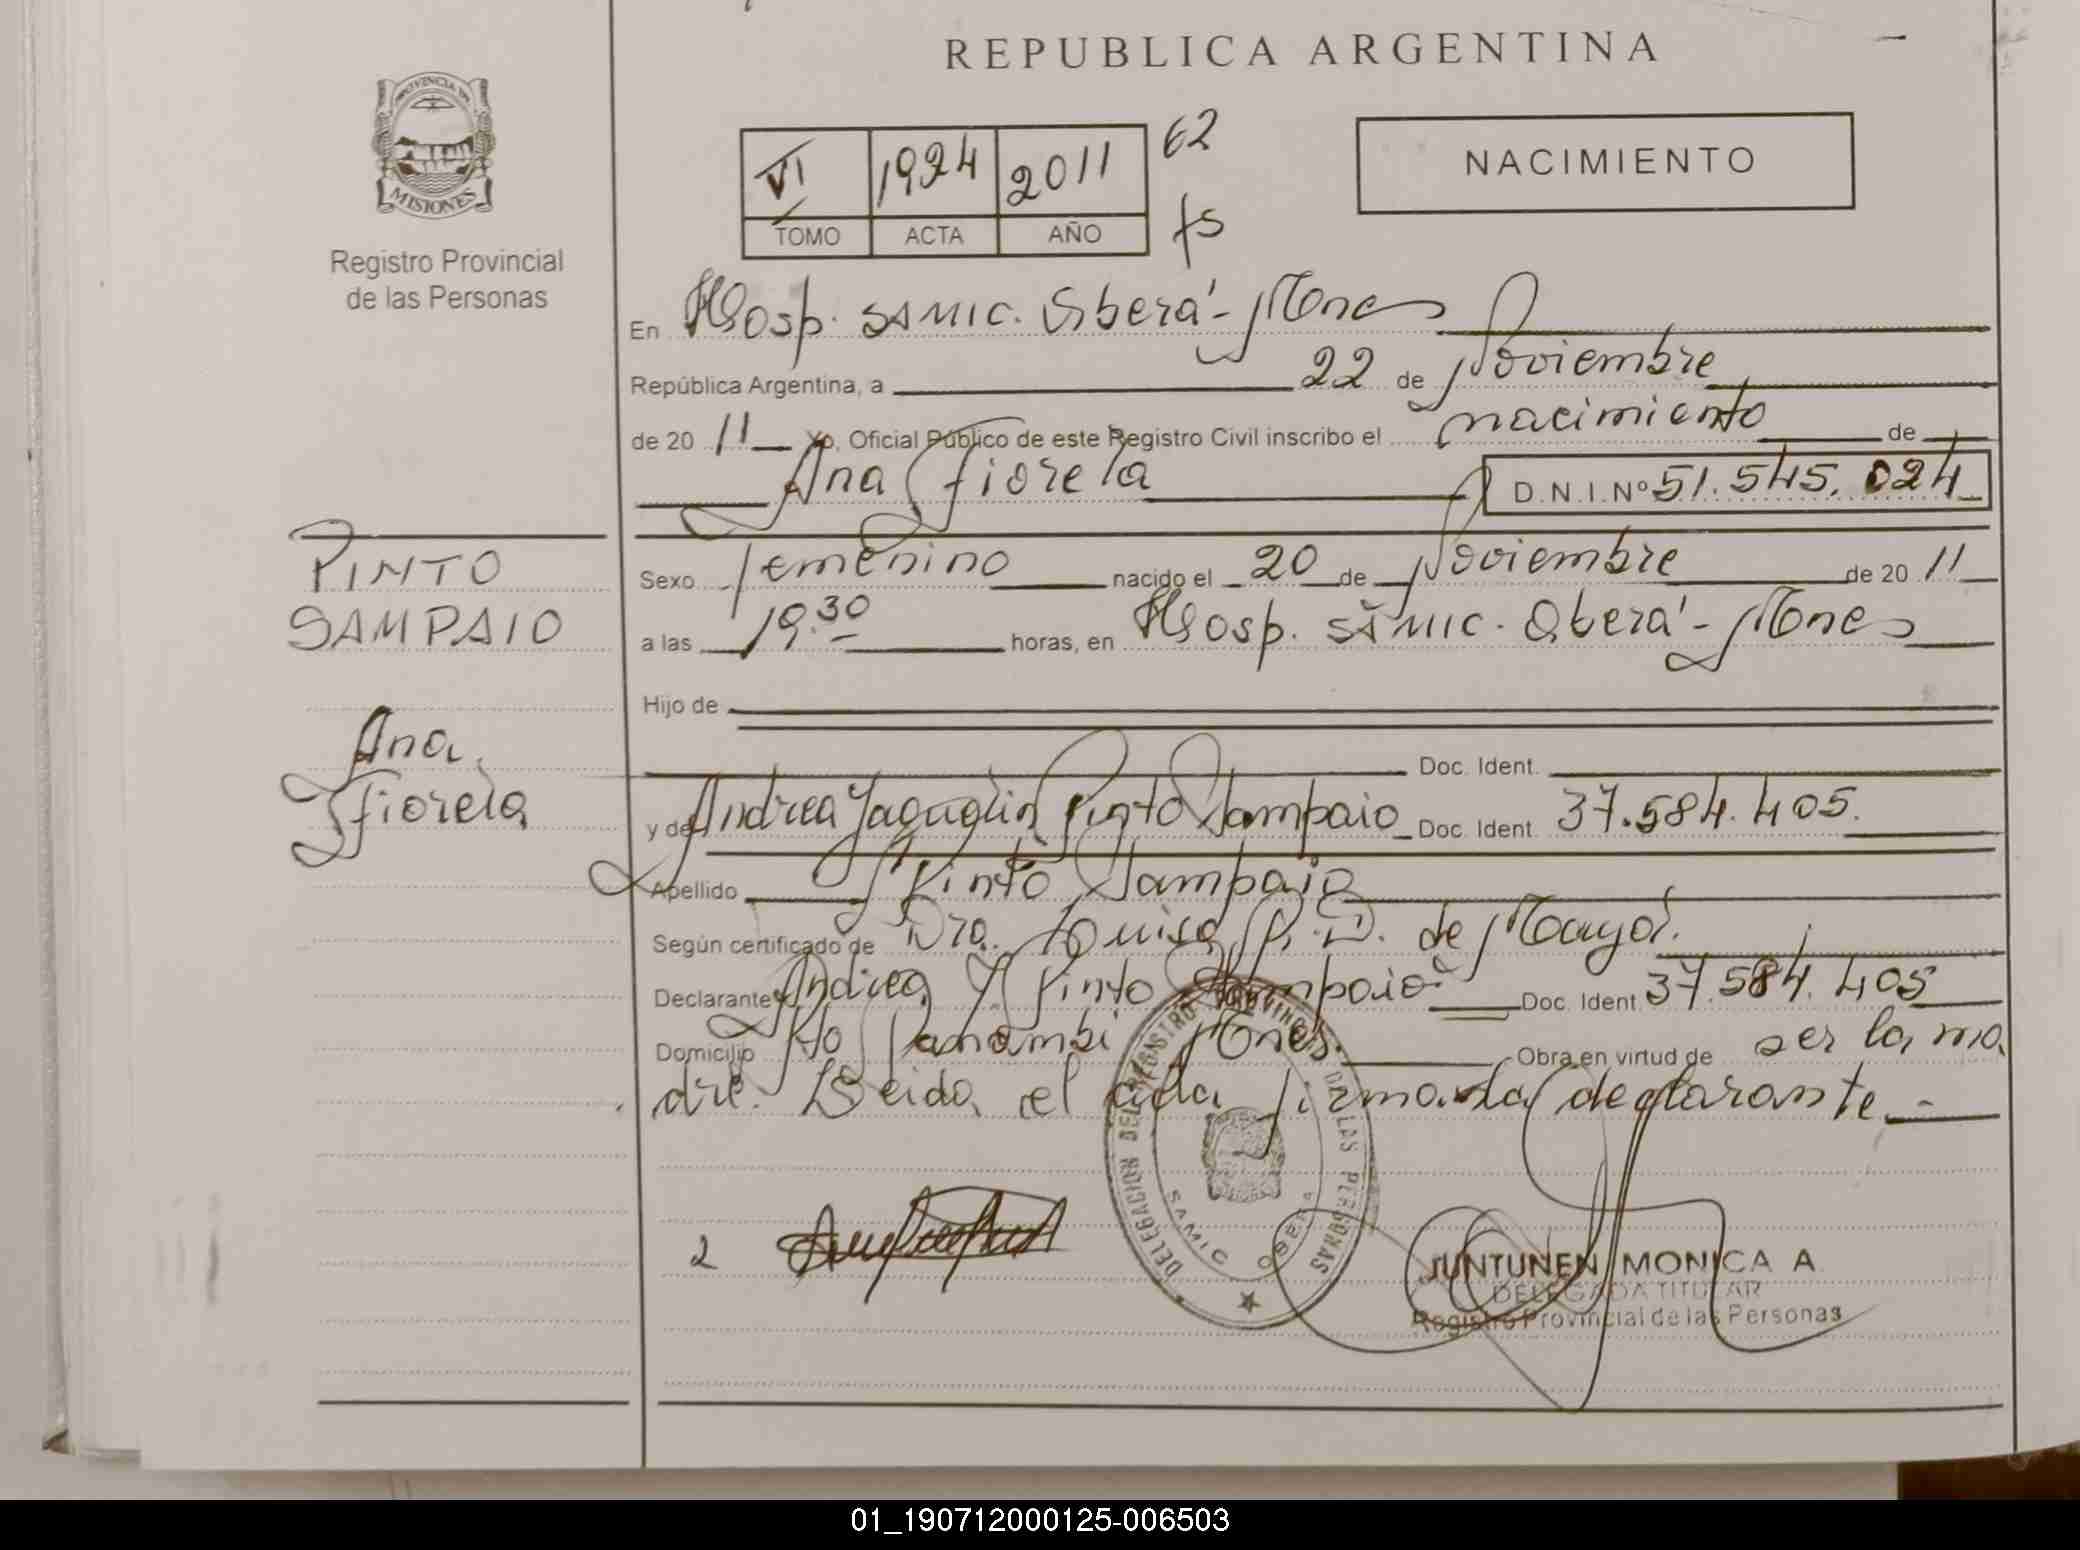 REPUBLICA ARGENTINA
PROVINCIA DE
MISIONES
Registro Provincial
de las Personas
VI 1924 2011 62
TOMO ACTA AÑO fs
NACIMIENTO
En Hosp. SAMIC. Oberá - Mnes
República Argentina, a 22 de Noviembre
de 20 11 Yo, Oficial Público de este Registro Civil inscribo el nacimiento de
Ana Fiorela D.N.I.Nº 51.545.024
PINTO
SAMPAIO
Ana
Fiorela
Sexo femenino nacido el 20 de Noviembre de 20 11
a las 19.30 horas, en Hosp. SAMIC. Oberá - Mnes
Hijo de
Doc. Ident.
y de Andrea Yaquelin Pinto Sampaio Doc. Ident. 37.584.405.
Apellido Pinto Sampaio
Según certificado de Dra. Luisa R. D. de Mayol.
Declarante Andrea Y. Pinto Sampaio Doc. Ident 37.584.405
Domicilio Pto Panambi Mnes. Obra en virtud de ser la ma
dre. Leida el acta firma la declarante.-
2
DELEGACION DEL REGISTRO PROVINCIAL DE LAS PERSONAS
SAMIC OBERA
JUNTUNEN MONICA A
DELEGADA TITULAR
Registro Provincial de las Personas
01_190712000125-006503